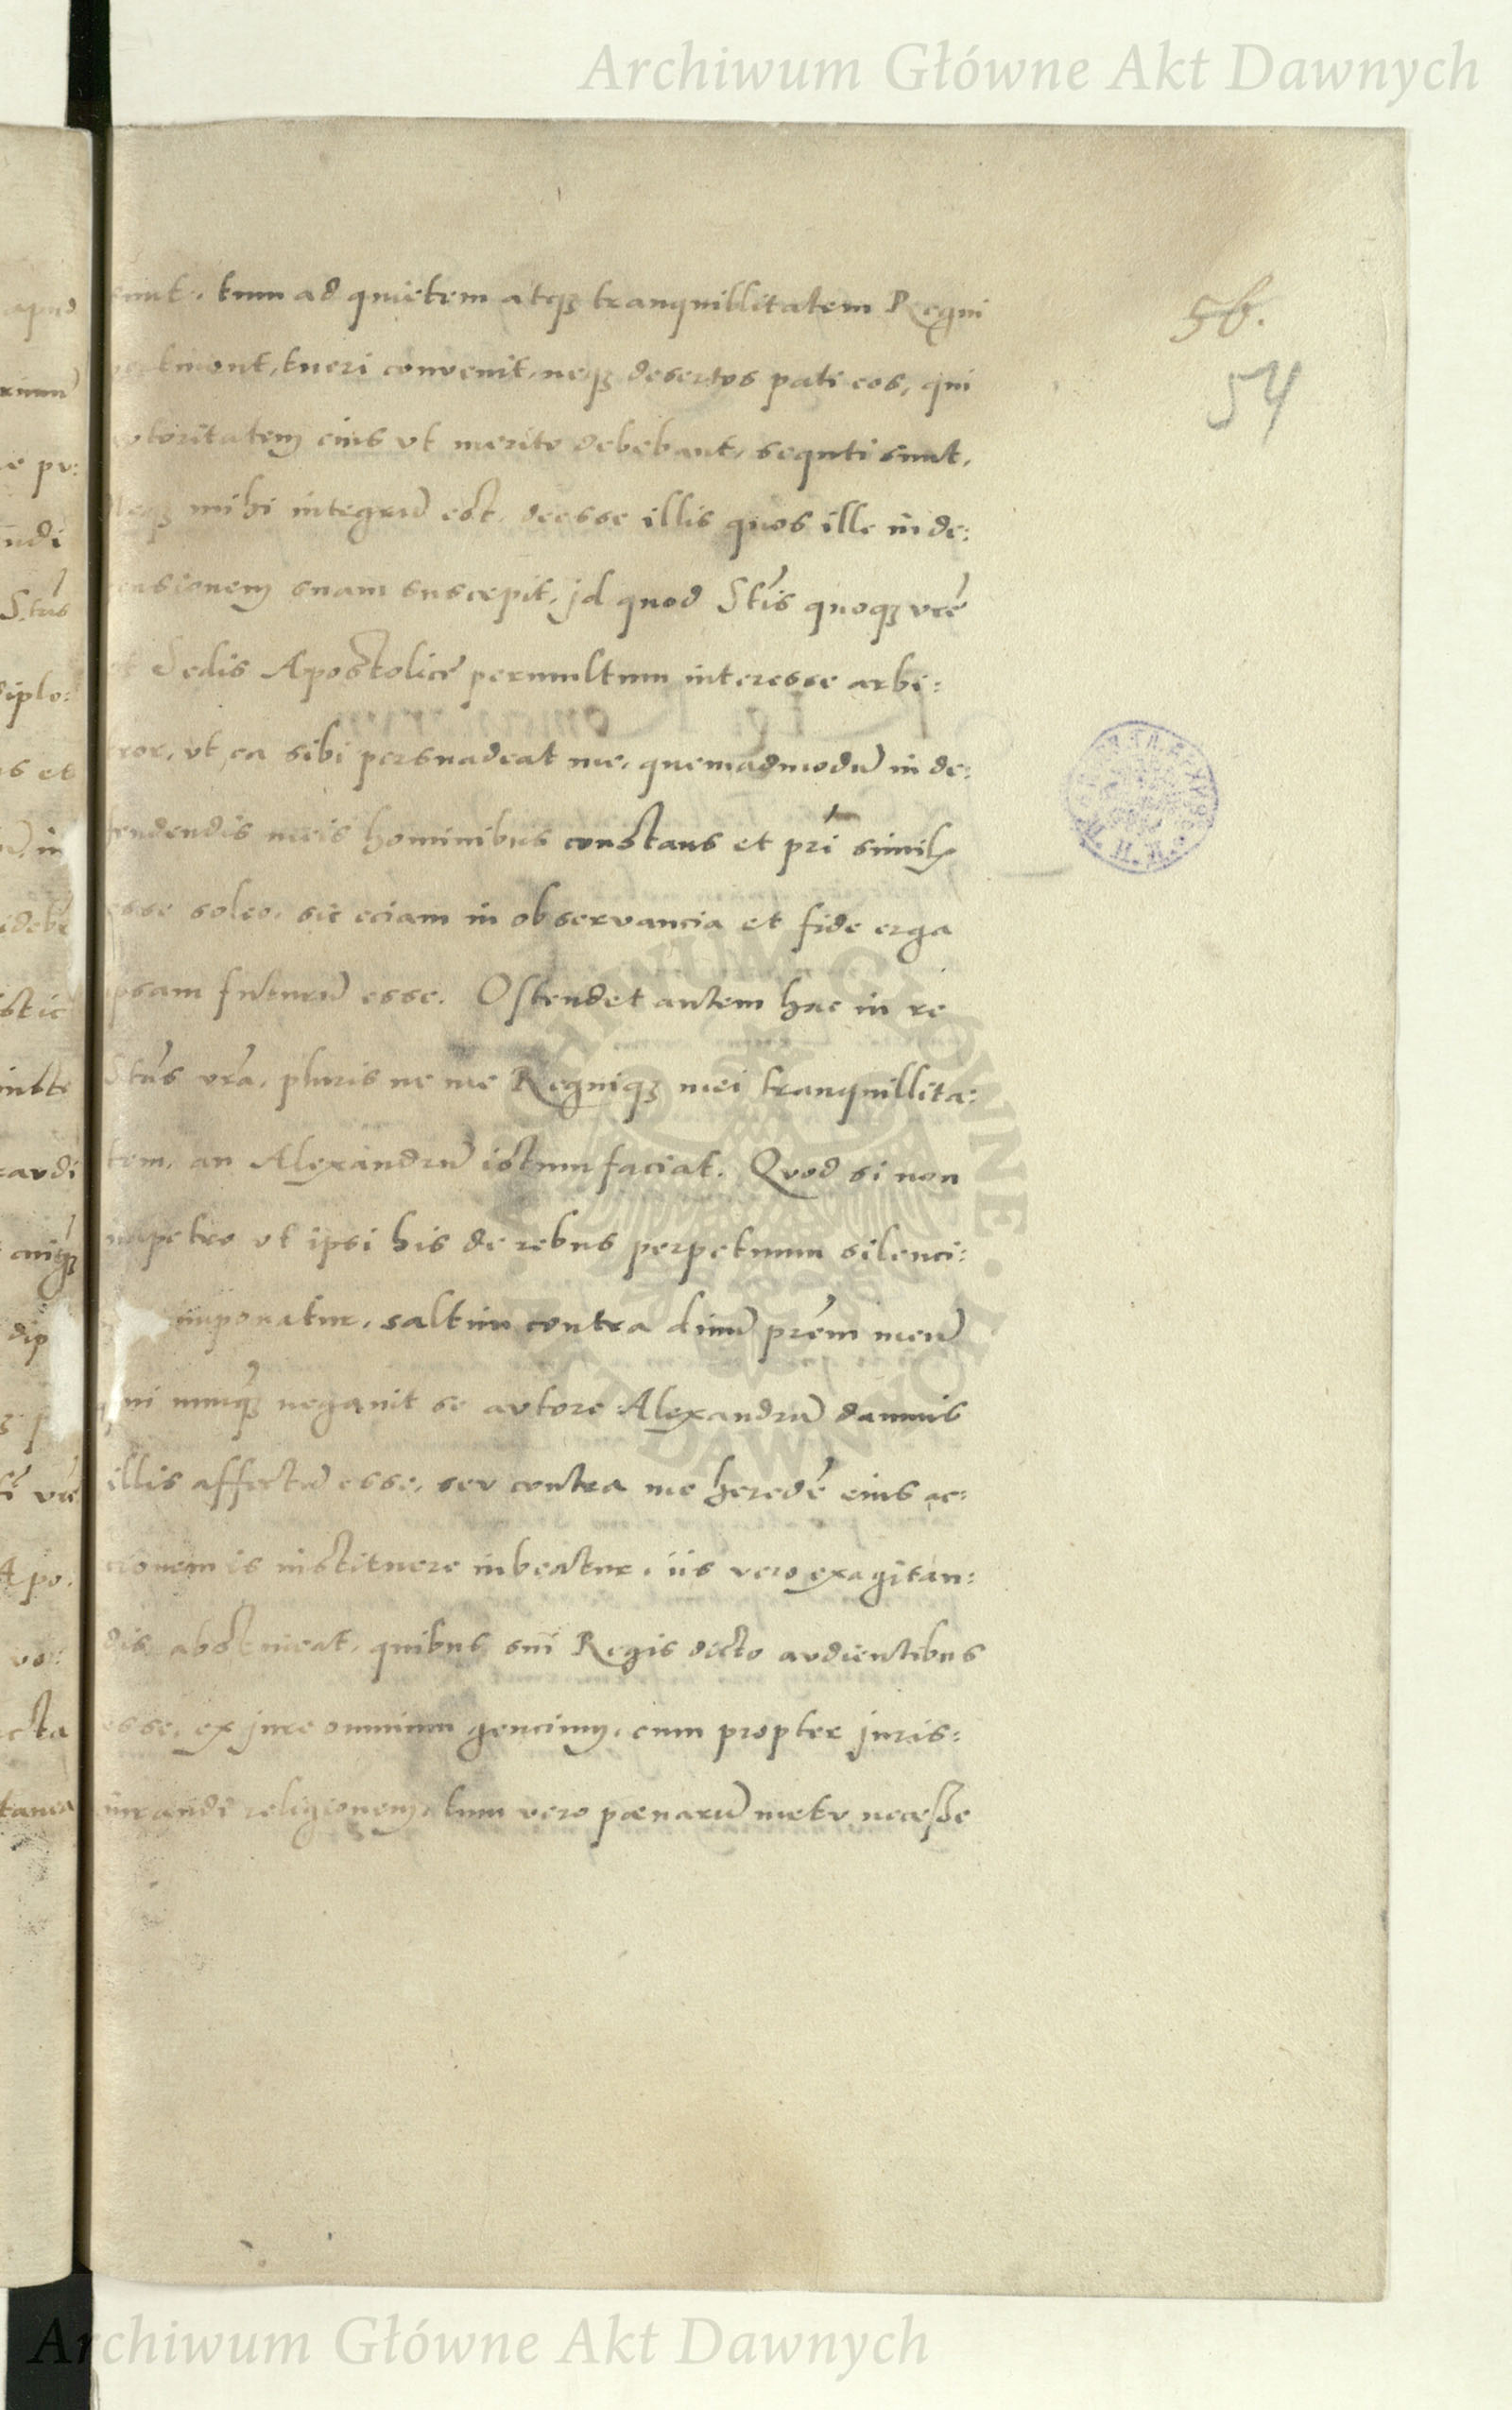 Archiwum Główne Akt Dawnych
56.
54
tum ad quietem atq3 tranquillitatem Regni
tueri convenit, neq3 desertos pati eos, qui
autoritatem eius vt merito debebant, sequti sunt,
Neq3 mihi integrū est, deesse illis quos ille in de:
fensionem suam suscepit, jd quod Stis quoq3 vrē
et Sedis Apostolicē permultum interesse arbi:
tror, vt ea sibi persuadeat me, quemadmodū in de:
fendendis meis hominibus constans et pri similis
esse soleo, sic eciam in observancia et fide erga
ipsam futurū esse. Ostendet autem hac in re
Stas vra, pluris ne me Regniq3 mei tranquillita:
tem, an Alexandrū istum faciat. Quod si non
impetro vt ipsi his de rebus perpetuum silenci:
imponatur, saltim contra divū prēm meū
qui nunq3 negavit se autore Alexandrū damnis
illis affectū esse, seu contra me heredē eius ac:
cionem is instituere iubeatur, iis vero exagitan:
dis abstineat, quibus sui Regis dicto audientibus
esse, ex jure omnium gencium, cum propter juris:
iurandi religionem, tum vero pænarū metu necesse
ARCHIWUM GŁÓWNE AKT DAWNYCH
Archiwum Główne Akt Dawnych